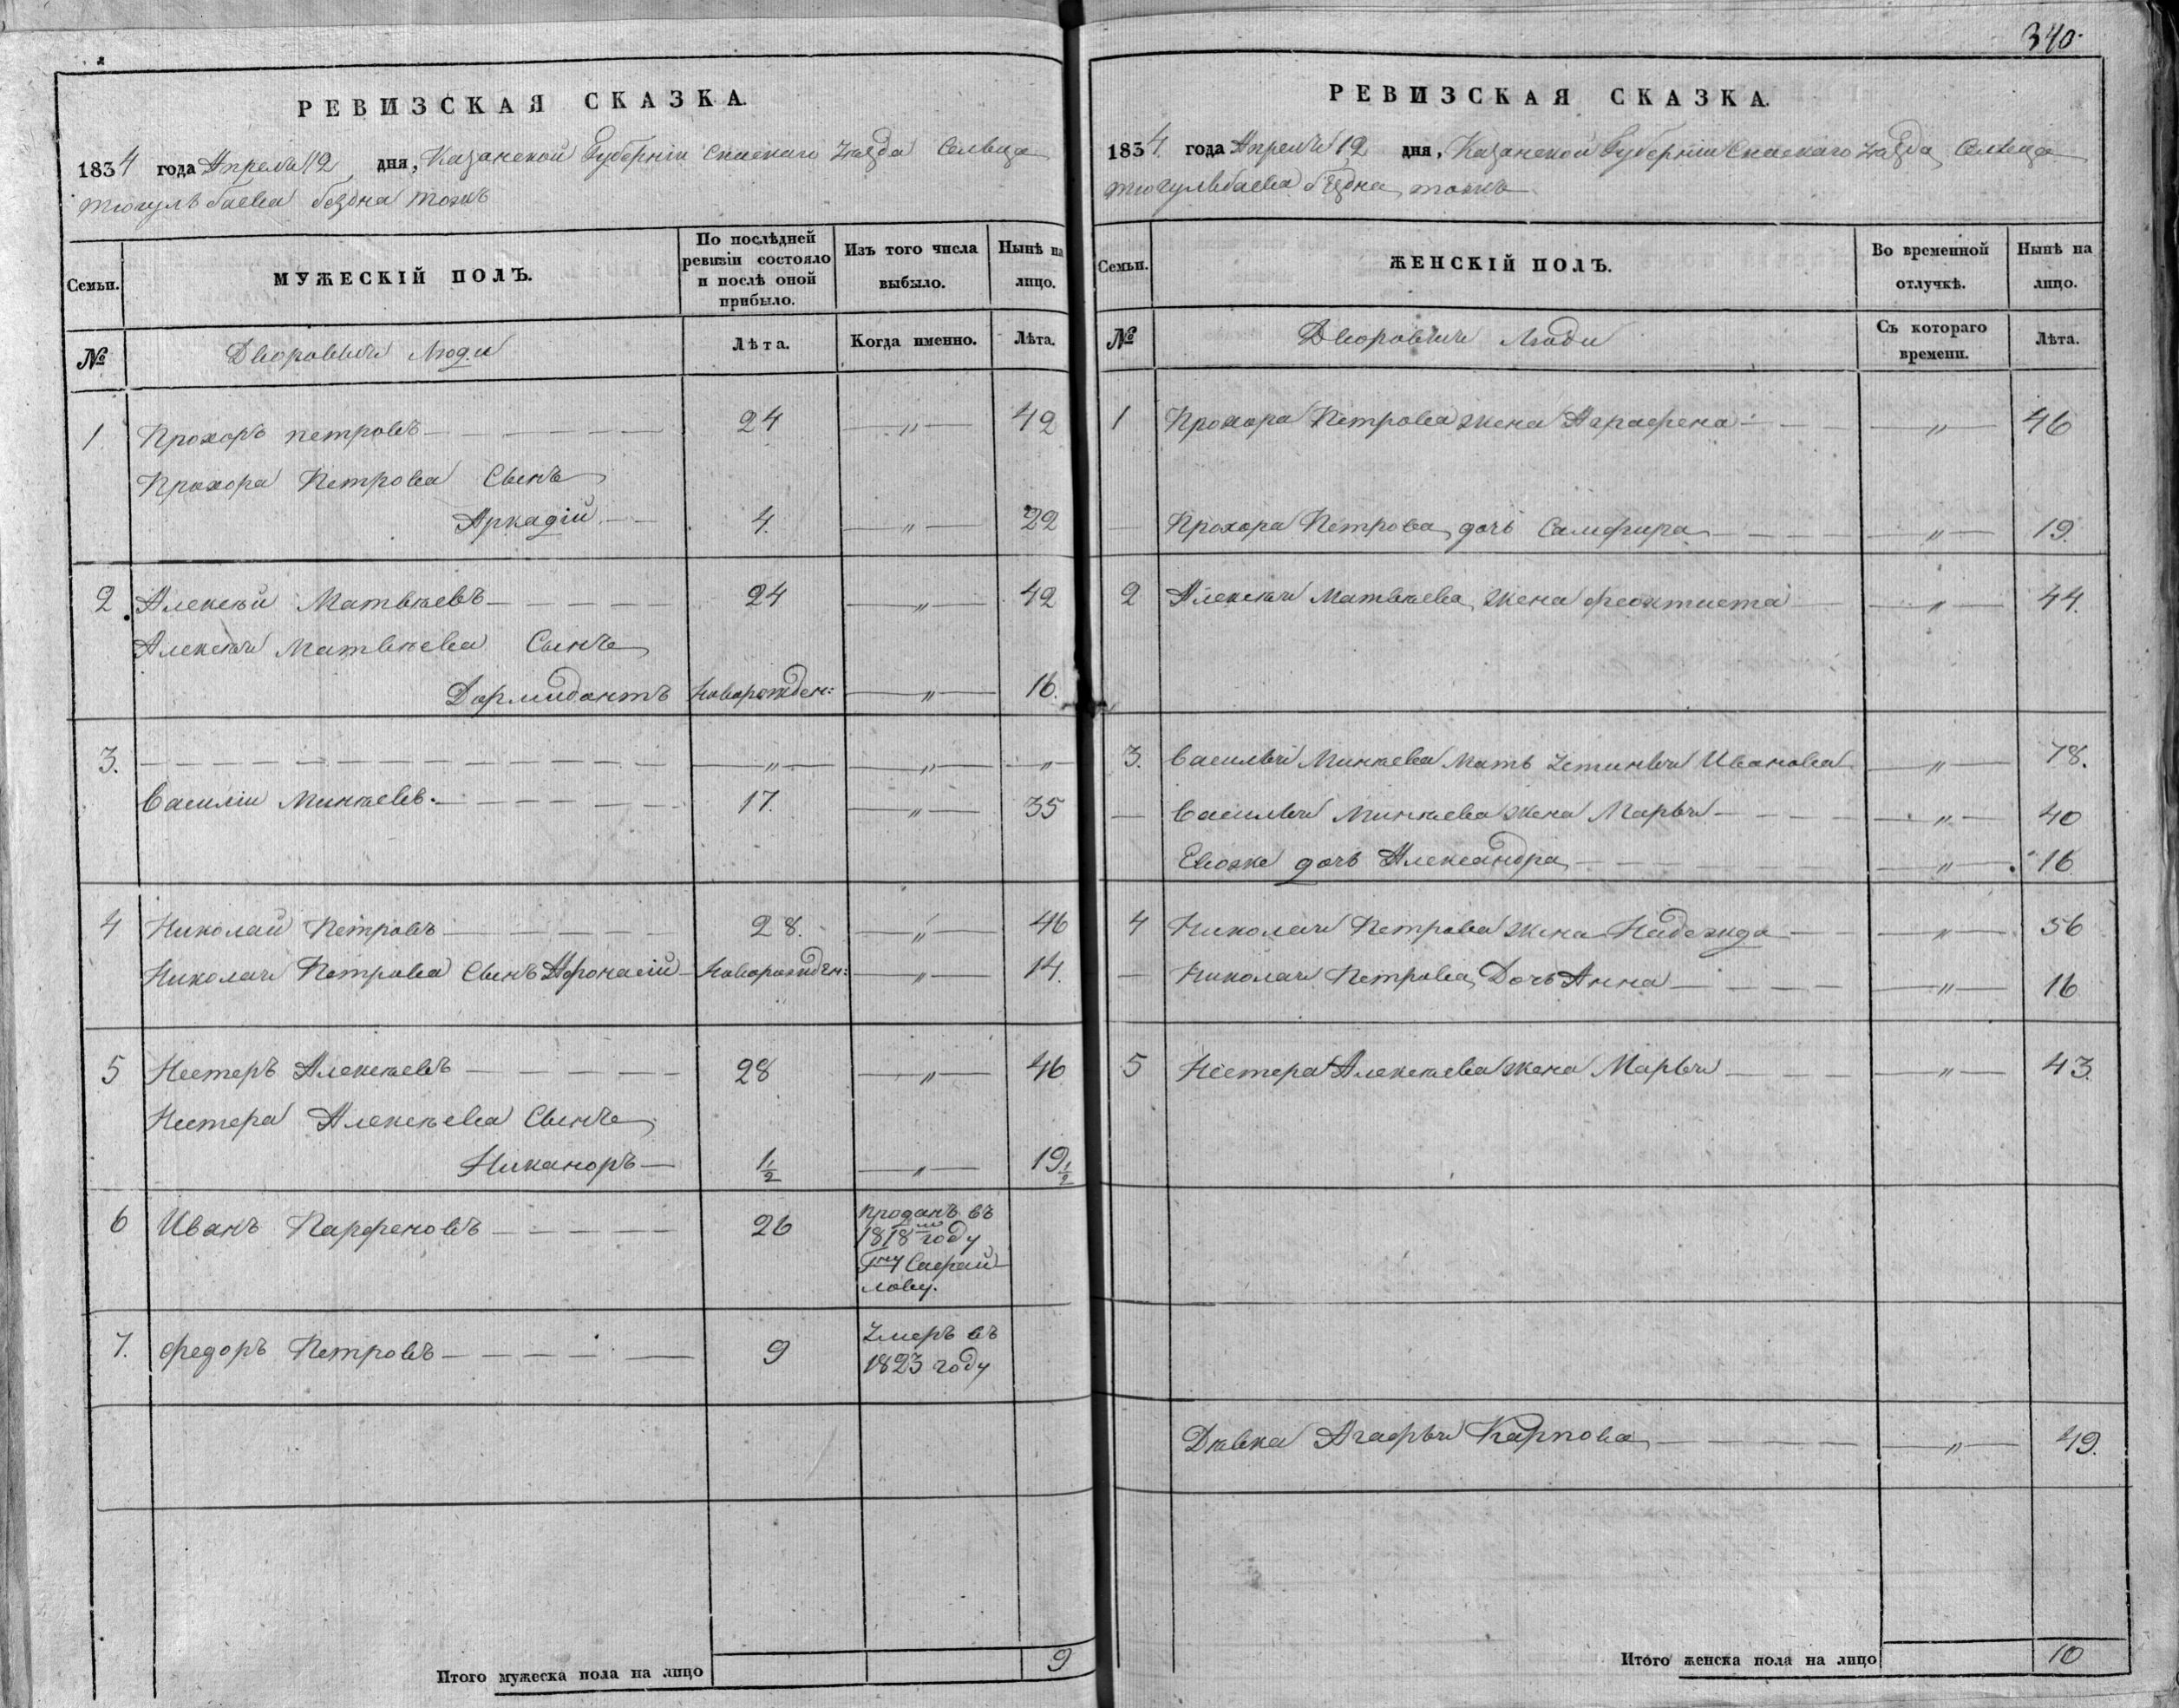 РЕВИЗСКАЯ СКАЗКА.
1834 года Апреля 12 дня, Казанской Губернiи Спаскаго Уѣзда Сельца
Тюгульбаева бездна тожъ
Семьи.
МУЖЕСКIЙ ПОЛЪ.
По послѣдней ревизiи состояло и послѣ оной прибыло.
Изъ того числа выбыло.
Нынѣ на лицо.
№
Дворовыя Люди
Лѣта.
Когда именно.
Лѣта.
1 Прохоръ петровъ 24 — „ — 42
Прохора Петрова Сынъ
Аркадiй 4. — „ — 22
2 Алексѣй Матвѣевъ 24 — „ — 42
Алексѣя Матвѣева Сынъ
Дормидонтъ новорожден: — „ — 16.
3. — „ — — „ — — „ —
Василiи Минѣевъ. 17. — „ — 35
4 Николай Петровъ 28. — „ — 46
Николая Петрова Сынъ Афонасiй новорожден: — „ — 14.
5 Нестеръ Алексѣевъ 28 — „ — 46
Нестера Алексѣева Сынъ
Никаноръ 1½ — „ — 19½
6 Иванъ Парфеновъ 26 проданъ въ
1818мъ году
Гну Сафай
лову.
7. Федоръ Петровъ 9 Умеръ въ
1823 году
Итого мужеска пола на лицо 9
340
РЕВИЗСКАЯ СКАЗКА.
1834 года Апреля 12 дня, Казанской Губернiи Спаскаго Уѣзда Сельца
Тюгульбаева бездна тожъ
Семьи.
ЖЕНСКIЙ ПОЛЪ.
Во временной отлучкѣ.
Нынѣ на лицо.
№
Дворовыя Люди
Съ котораго времени.
Лѣта.
1 Прохора Петрова жена Аграфена — „ — 46
Прохора Петрова дочь Самфира — „ — 19.
2 Алексѣя Матвѣева жена Феоктиста — „ — 44.
3. Василья Минѣева Мать Устинья Иванова — „ — 78.
Василья Минѣева жена Марья — „ — 40
Евоже дочь Александра — „ — 16
4 Николая Петрова жена Надежда — „ — 56
Николая Петрова Дочь Анна — „ — 16
5 Нестера Алексѣева жена Марья — „ — 43.
Дѣвка Агафья Карпова — „ — 49.
Итого женска пола на лицо 10